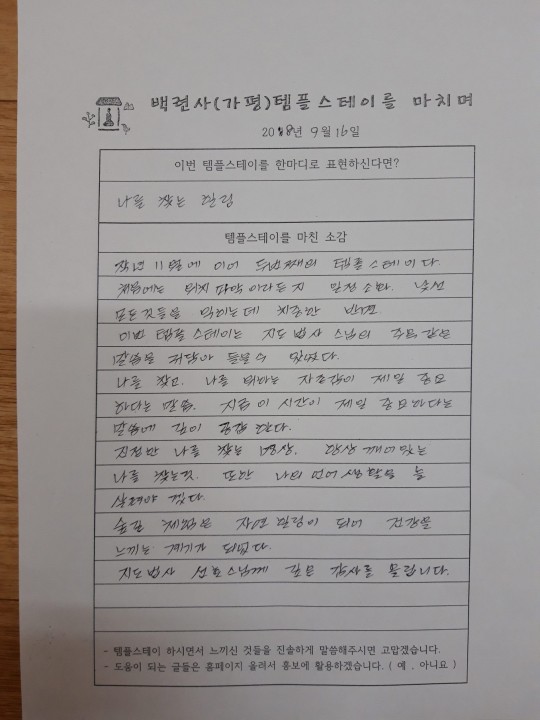 백련사(가평)템플스테이를 마치며
2018년 9월 16일
이번 템플스테이를 한마디로 표현하신다면?
나를 찾는 힐링
템플스테이를 마친 소감
작년 11월에 이어 두번째의 템플스테이다.
처음에는 위치 파악이라든지 일정 소화. 낯선
모든것들을 익히는데 치중한 반면
이번 템플스테이는 지도법사 스님의 주옥같은
말씀을 귀담아 들을수 있었다.
나를 찾고. 나를 대하는 자존감이 제일 중요
하다는 말씀. 지금 이 시간이 제일 중요하다는
말씀에 깊이 공감한다.
진정한 나를 찾는 명상. 항상 깨어있는
나를 찾는것. 또한 나의 언어생활을 늘
살펴야 겠다.
숲길 체험은 자연 힐링이 되어 건강을
느끼는 계기가 되었다.
지도법사 선효스님께 깊은 감사를 올립니다.
- 템플스테이 하시면서 느끼신 것들을 진솔하게 말씀해주시면 고맙겠습니다.
- 도움이 되는 글들은 홈페이지 올려서 홍보에 활용하겠습니다. ( 예 , 아니요 )